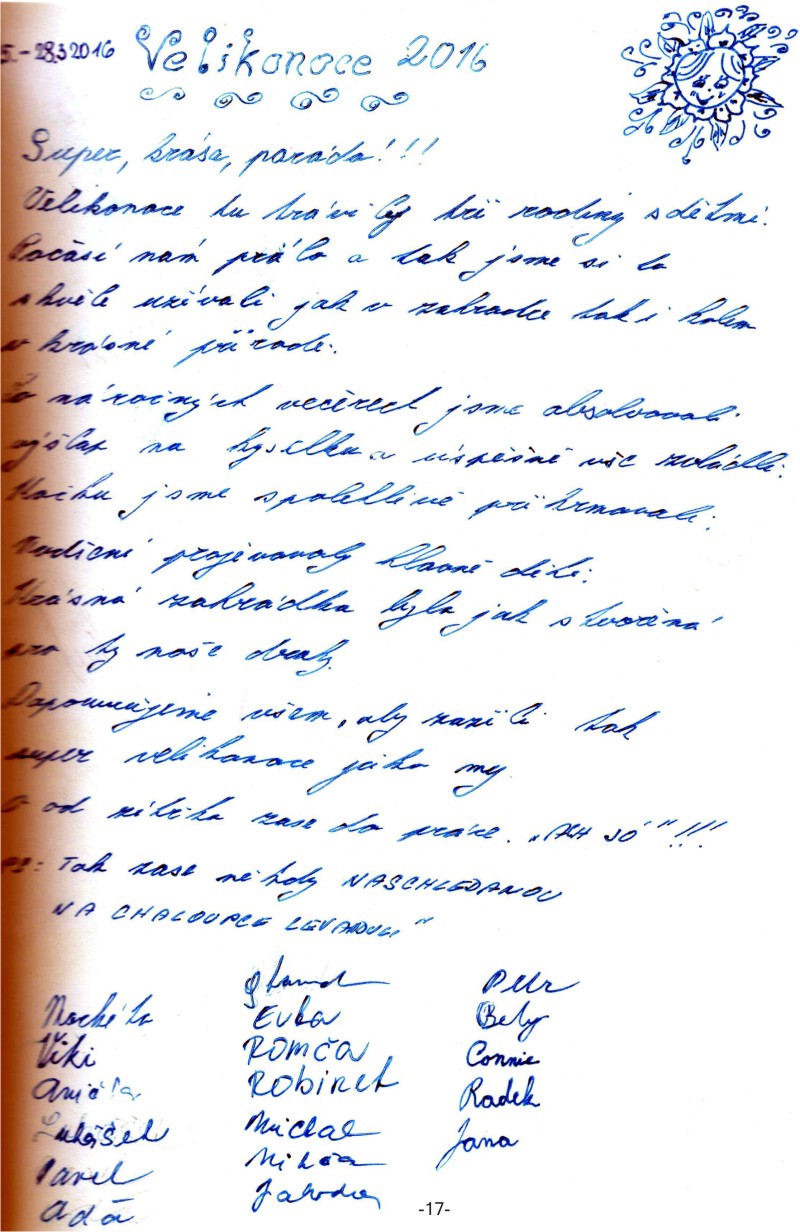 5.-28.3 2016 Velikonoce 2016
Super, krása, paráda!!!
Velikonoce tu trávily tři rodiny s dětmi.
Počasí nám přálo a tak jsme si to
skvěle užívali jak v zahradce tak i kolem
v krásné přírodě.
Po náročných večerech jsme absolvovali
výšlap na kyselku a úspěšně vše zvládli.
Kočku jsme spolehlivě přikrmovali.
projevovaly hlavně děti.
Krásná zahrádka byla jak stvořená
pro ty naše draky.
všem, aby zažili tak
super velikonoce jako my.
A od zítřka zase do práce. „ACH JÓ" !!!
PS: Tak zase někdy NASCHLEDANOU
NA CHALOUPCE LEVANDULI"
Markéta
Viki
Lukášek
Pavel
Adá
Evka
ROMČA
RObinek
Michal
Petr
Bety
Connie
Radek
Jana
-17-